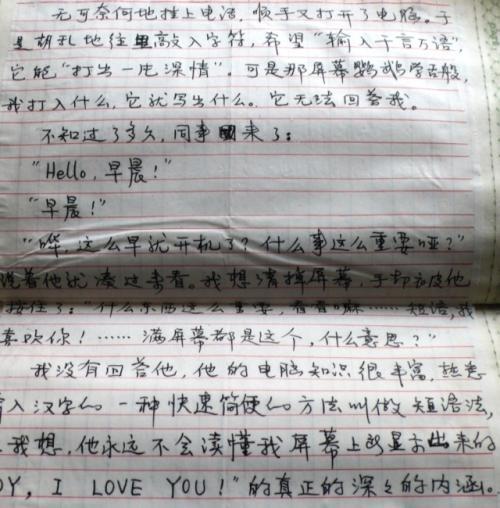 无可奈何地挂上电话，顺手又打开了电脑。于
是胡乱地往里敲入字符，希望“输入千言万语”，
它能“打出一片深情”。可是那屏幕鹦鹉学舌般，
我打入什么，它就写出什么。它无法回答我。
不知过了多久，同事来了：
“Hello，早晨！”
“早晨！”
“哗，这么早就开机了？什么事这么重要哑？”
说着他就凑过来看。我想清掉屏幕，手却被他
按住了：“什么东西这么重要，看看嘛……短语，我
喜欢你！……满屏幕都是这个，什么意思？”
我没有回答他，他的电脑知识很丰富，熟悉
输入汉字的一种快速简便的方法叫做短语法，
我想，他永远不会读懂我屏幕上所显示出来的
OY，I LOVE YOU！”的真正的深深的内涵。